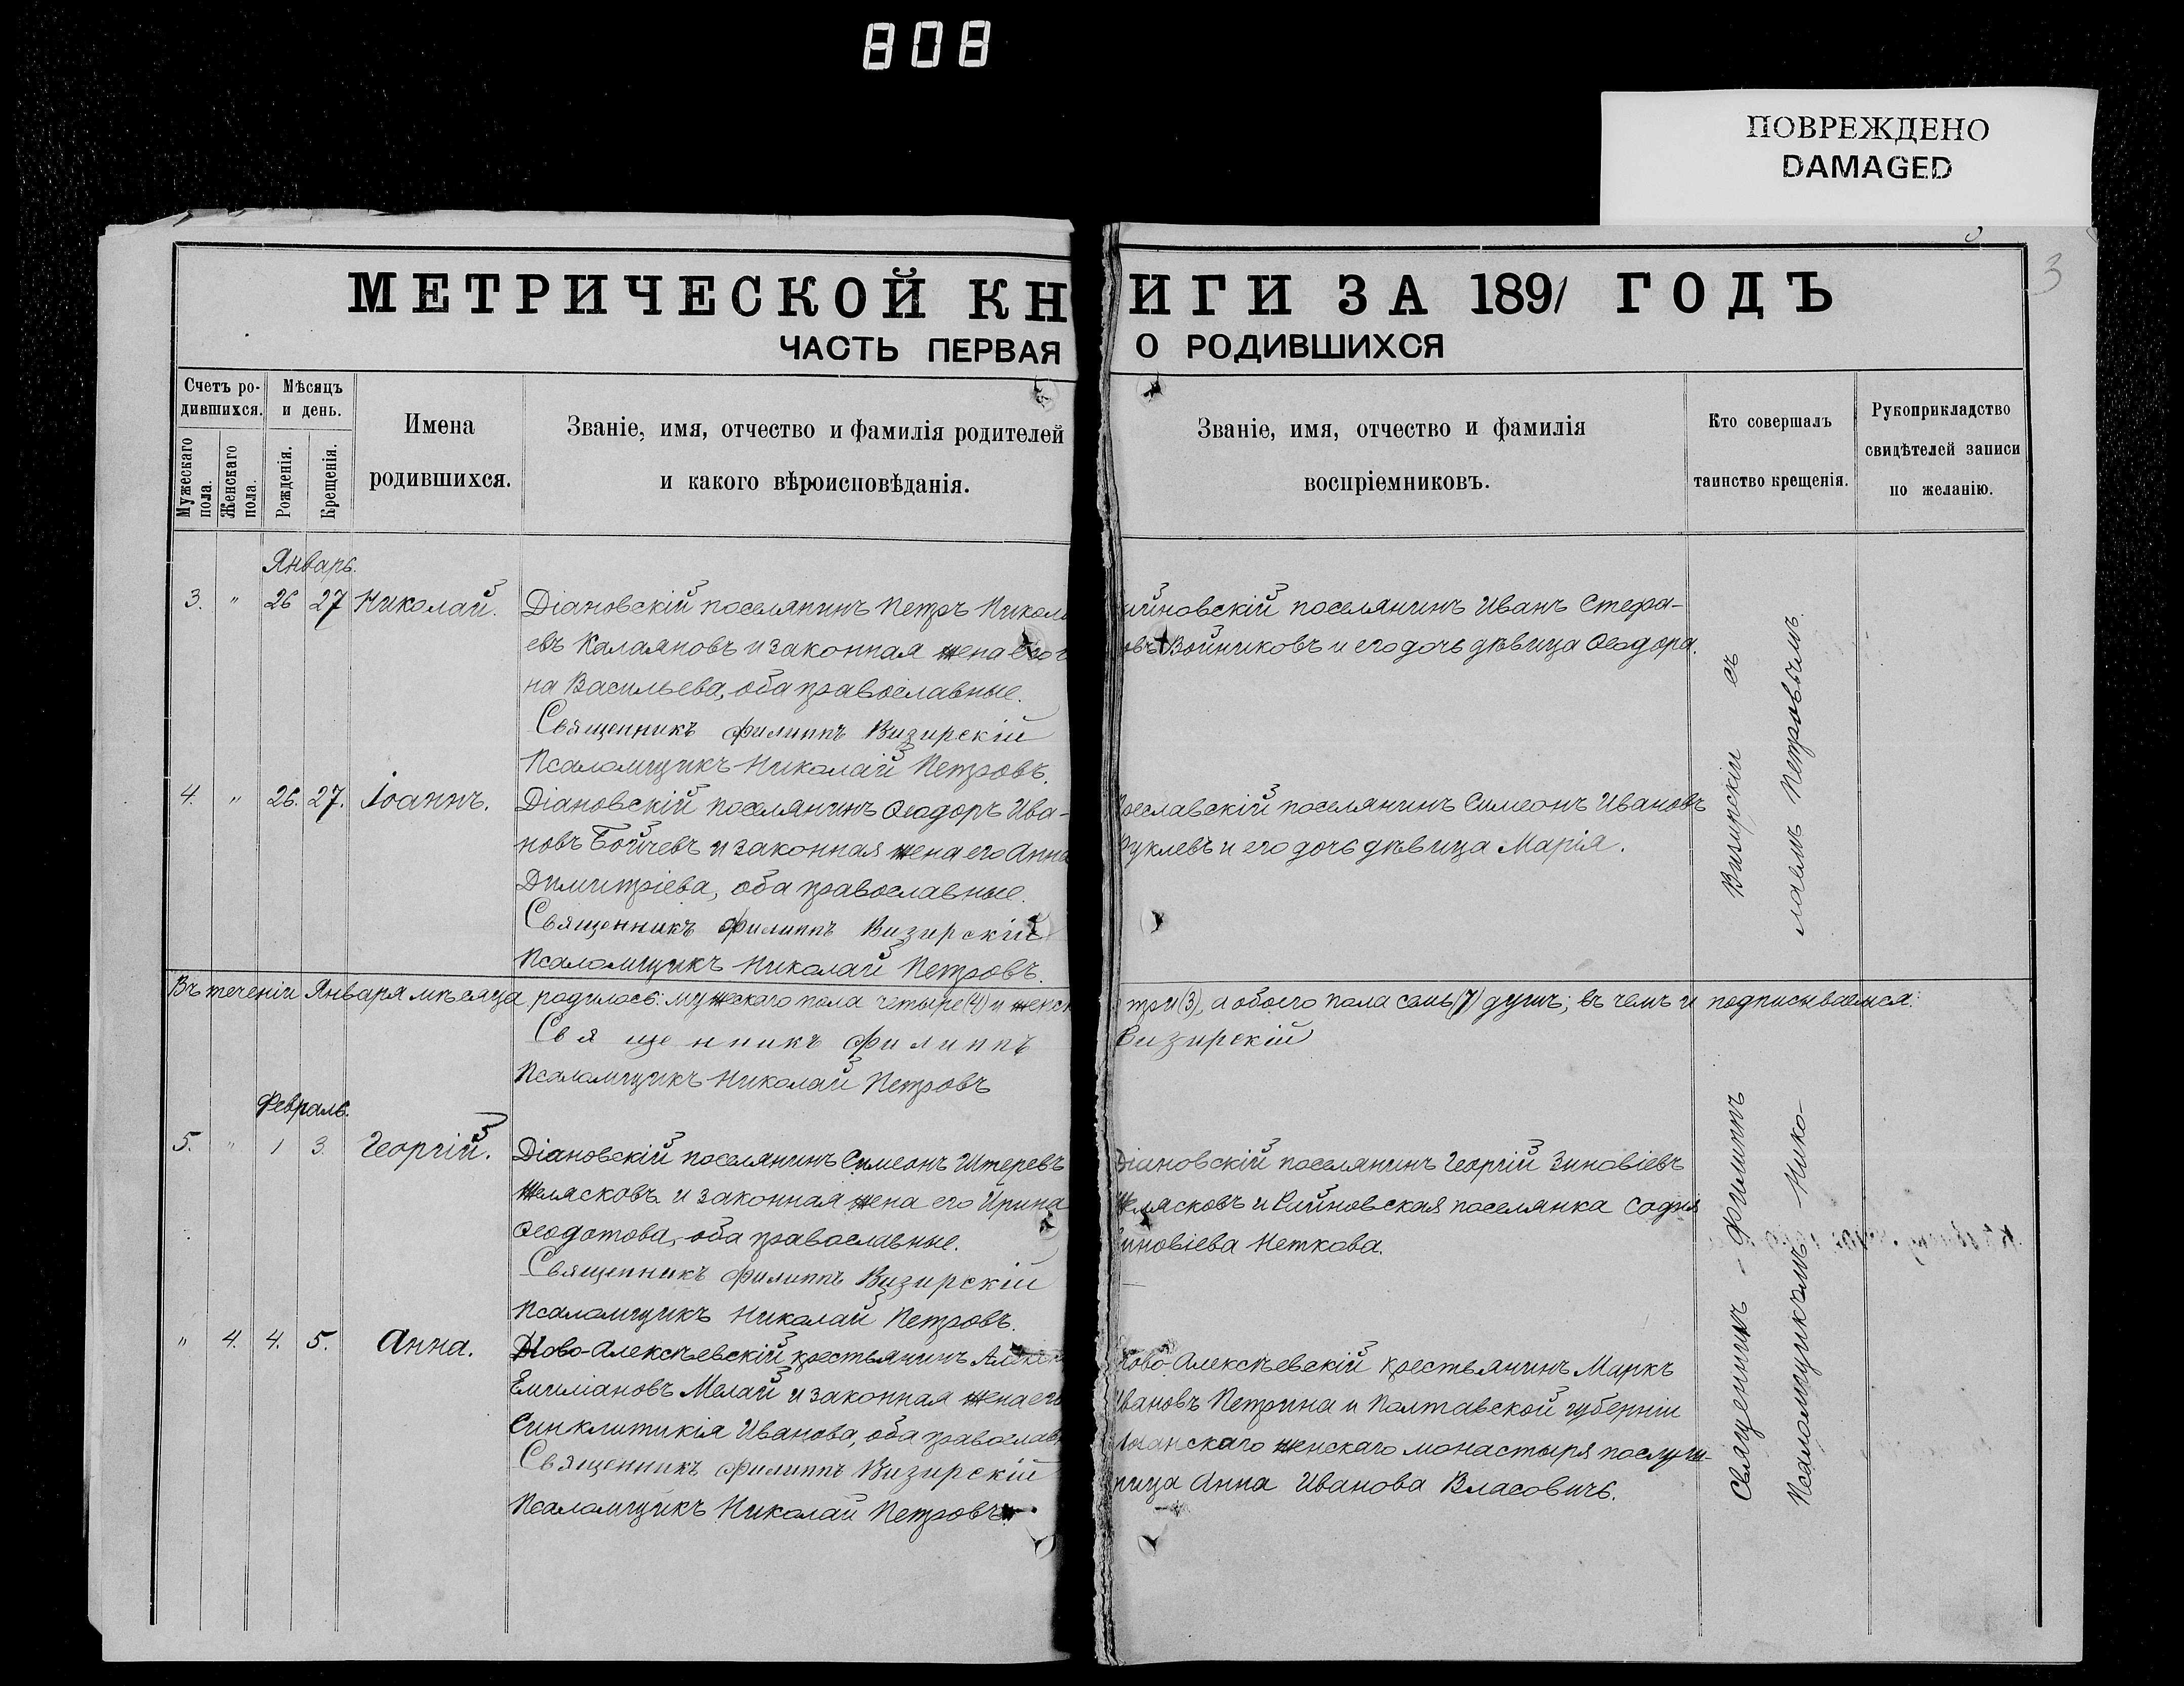 808
ПОВРЕЖДЕНО
DAMAGED
3
МЕТРИЧЕСКОЙ КНИГИ ЗА 1891 ГОДЪ
ЧАСТЬ ПЕРВАЯ О РОДИВШИХСЯ
Счетъ родившихся.
Мужескаго пола.
Женскаго пола.
Мѣсяцъ и день.
Рожденія.
Крещенія.
Имена
родившихся.
Званіе, имя, отчество и фамилія родителей
и какого вѣроисповѣданія.
Званіе, имя, отчество и фамилія
воспріемниковъ.
Кто совершалъ
таинство крещенія.
Рукоприкладство
свидѣтелей записи
по желанію.
Январь.
3. " 26 27 Николай.
Діановскій поселянинъ Петръ Никола
евъ Калаяновъ и законная жена его
на Васильева, оба православные.
Священникъ Филиппъ Визирскій
Псаломщикъ Николай Петровъ.
ийновскій поселянинъ Иванъ Стефа-
овъ Войниковъ и его дочь дѣвица Ѳеодора.
4. " 26. 27. Іоаннъ.
Діановскій поселянинъ Ѳеодоръ Ива-
новъ Бойчевъ и законная жена его Анна
Димитріева, оба православные.
Священникъ Филиппъ Визирскій
Псаломщикъ Николай Петровъ.
рославскій поселянинъ Симеонъ Ивановъ
Руклевъ и его дочь дѣвица Марія.
Въ теченіи Января мѣсяца родилось: мужескаго пола четыре (4) и женск три (3), а обоего пола семь (7) душъ; въ чемъ и подписываемся:
Священникъ Филиппъ Визирскій
Псаломщикъ Николай Петровъ
Февраль.
5. " 1 3. Георгій.
Діановскій поселянинъ Симеонъ Штеревъ
Желясковъ и законная жена его Ирина
Ѳеодотова, оба православные.
Священникъ Филиппъ Визирскій
Псаломщикъ Николай Петровъ.
Діановскій поселянинъ Георгій Зиновіевъ
Желясковъ и Сийновская поселянка Софія
иновіева Неткова.
" 4. 4. 5. Анна.
Ново-Алексѣевскій крестьянинъ Алекс
Емиліановъ Мелай и законная жена его
Синклитикія Иванова, оба православ
Священникъ Филиппъ Визирскій
Псаломщикъ Николай Петровъ.
Ново-Алексѣевскій крестьянинъ Маркъ
Ивановъ Петрина и Полтавской губерніи
женскаго монастыря послуш-
ница Анна Иванова Власовичъ.
Священникъ - Филиппъ Визирскій съ
Псаломщикомъ Нико-лаемъ Петровымъ.